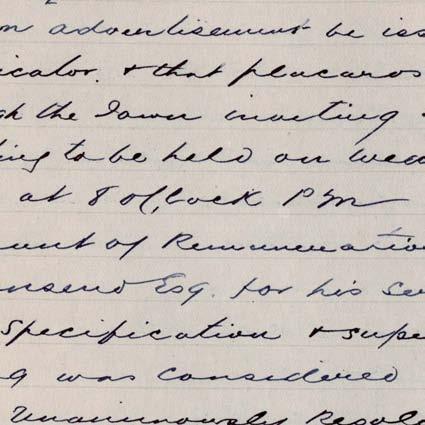 n advertisement be iss
icator. & that placards
gh the Town inviting
ting to be held on Wed
at 8 o,clock P m
unt of Remuneration
nsend Esq. for his ser
specification & supe
g was considered
Unanimously Resol